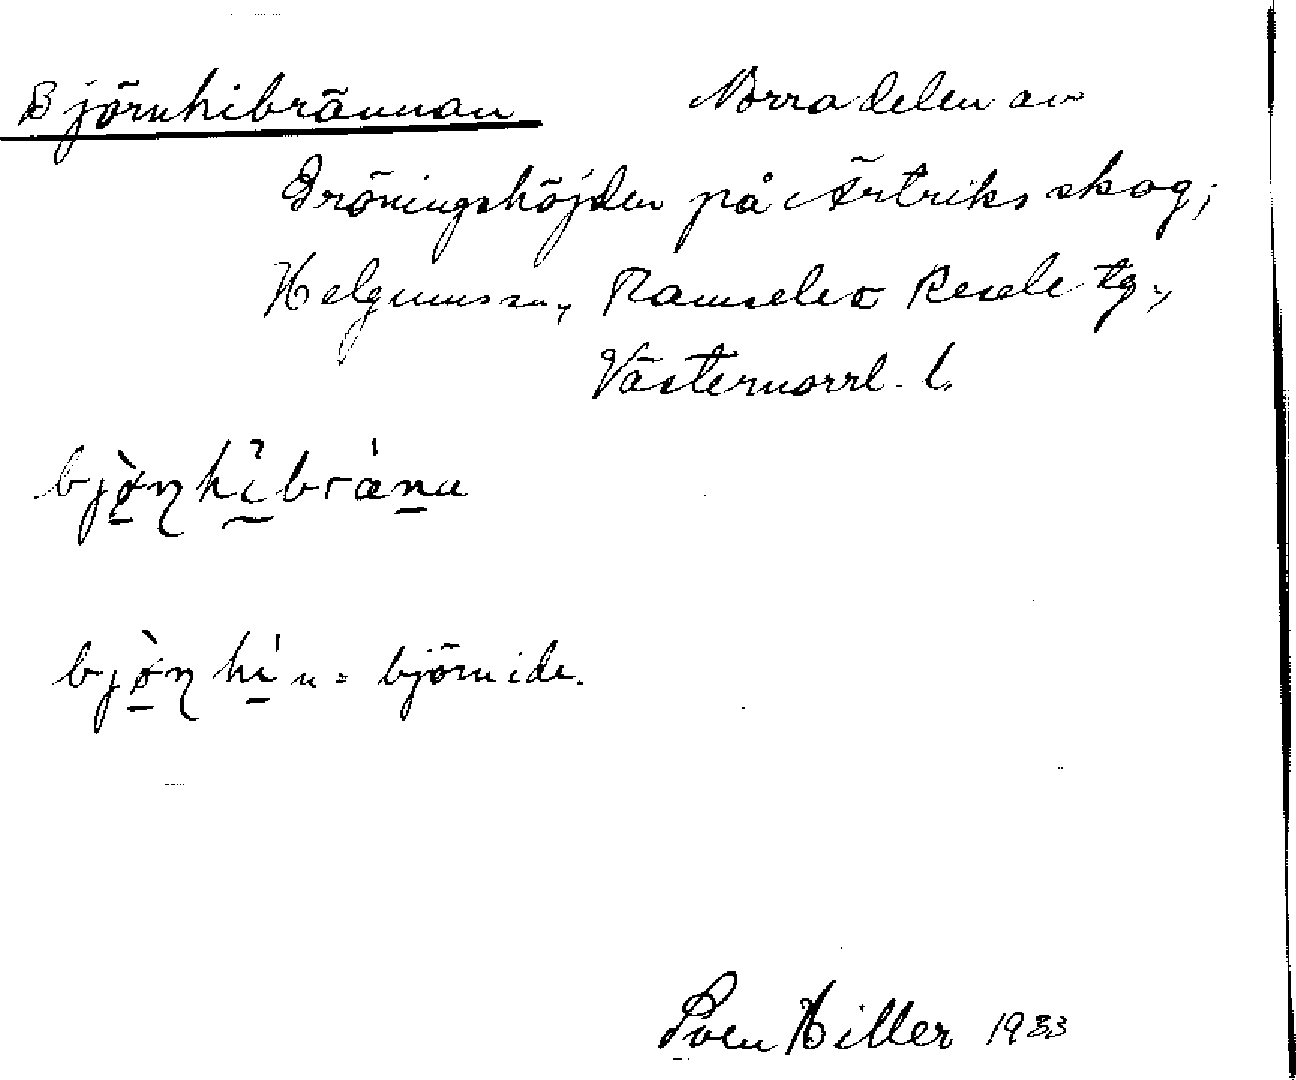 Björnhibrännan Norra delen av
Gröningshöjden på Ärtriks skog;
Helgums sn, Ramsele o Resele tg.,
Västernorrl. l.
bjòn̩hı̀brànu
bjòn̩hı̀ n = björnide.
Sven Hiller 1933